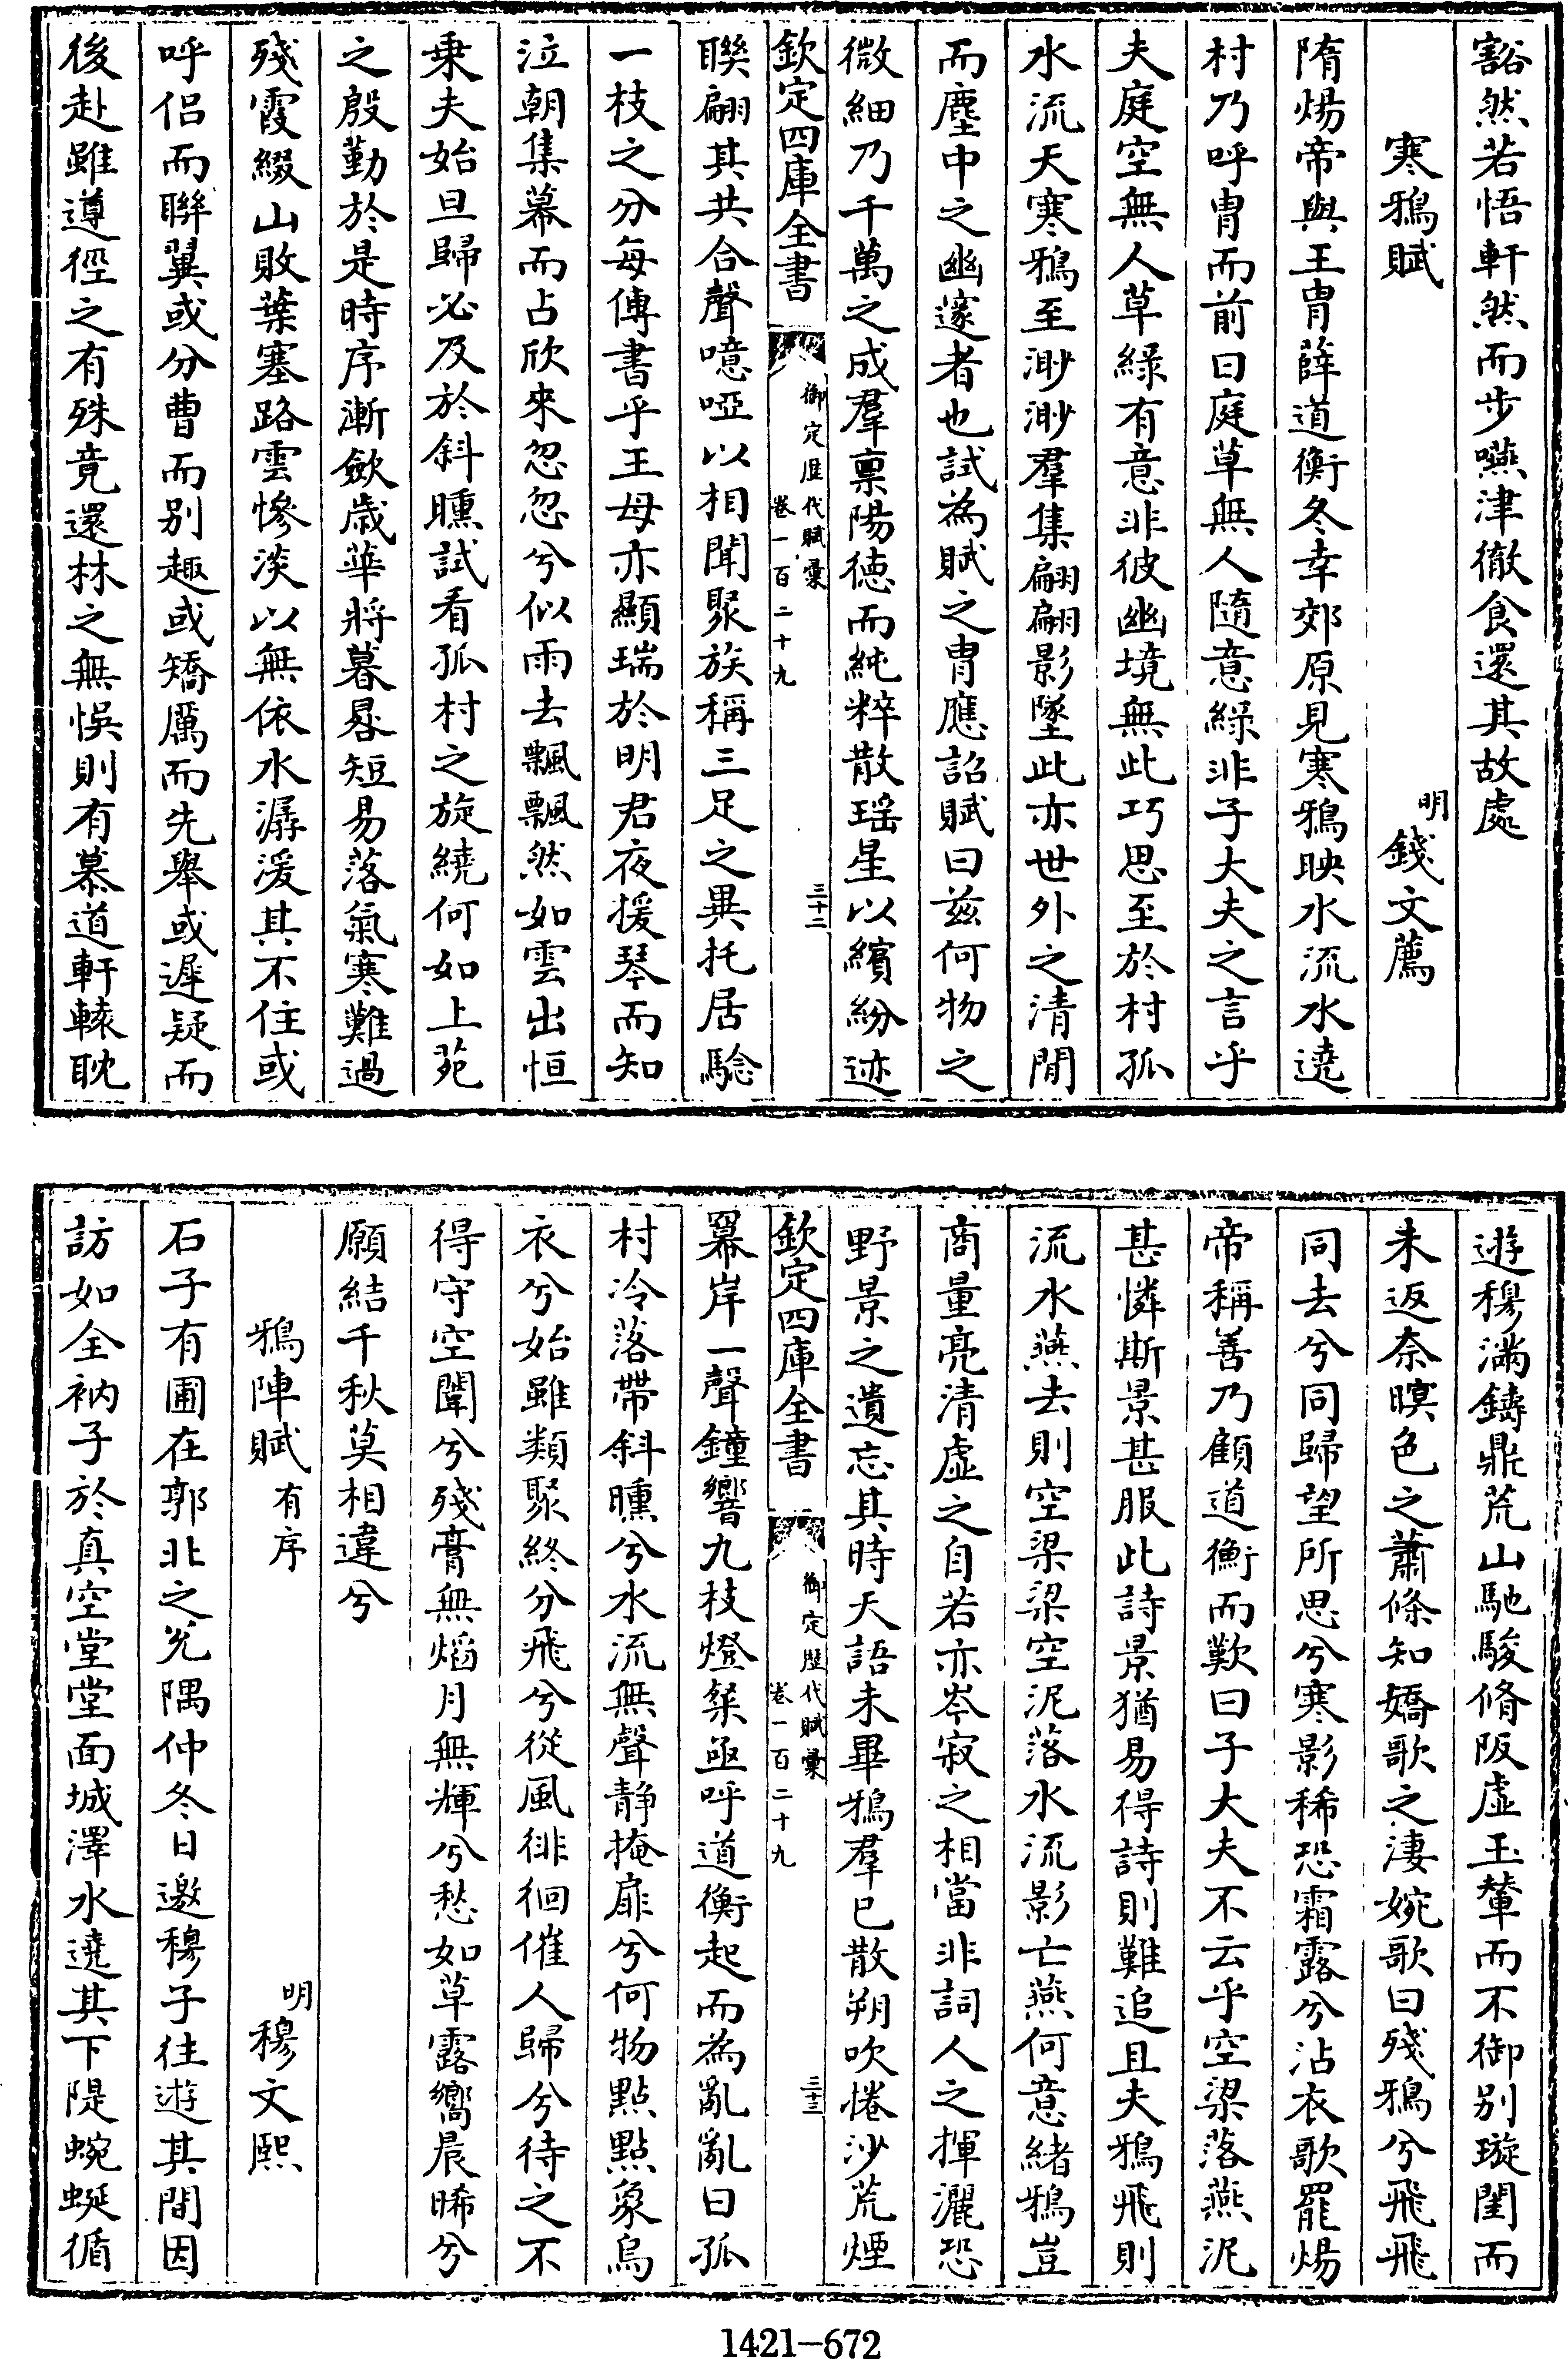 豁然若悟軒然而步嚥津徹食還其故處
寒鴉賦
明錢文薦
隋煬帝與王胄薛道衡冬幸郊原見寒鴉映水流水遶
村乃呼胄而前曰庭草無人隨意綠非子大夫之言乎
夫庭空無人草綠有意非彼幽境無此巧思至於村孤
水流天寒鴉至渺渺羣集翩翩影墜此亦世外之清閒
而塵中之幽邃者也試為賦之胄應詔賦曰兹何物之
微細乃千萬之成羣禀陽德而純粹散瑶星以繽紛迹
欽定四庫全書
御定歷代賦彙
卷一百二十九
三十二
聨翩其共合聲噫啞以相聞聚族稱三足之異托居騐
一枝之分每傳書乎王母亦顯瑞於明君夜援琴而知
泣朝集幕而占欣來忽忽兮似雨去飄飄然如雲出恒
乗夫始旦歸必及於斜曛試看孤村之旋繞何如上苑
之殷勤於是時序漸歛歳華將暮晷短易落氣寒難過
殘霞綴山敗葉塞路雲慘淡以無依水潺湲其不住或
呼侣而聨翼或分曹而别趣或矯厲而先舉或遲疑而
後赴雖遵徑之有殊竟還林之無悞則有慕道軒轅耽
遊穆滿鑄鼎荒山馳駿脩阪虚玉輦而不御别璇閨而
未返奈暝色之蕭條知嬌歌之淒婉歌曰殘鴉兮飛飛
同去兮同歸望所思兮寒影稀恐霜露兮沾衣歌罷煬
帝稱善乃顧道衡而歎曰子大夫不云乎空梁落燕泥
甚憐斯景甚服此詩景猶易得詩則難追且夫鴉飛則
流水燕去則空梁梁空泥落水流影亡燕何意緒鴉豈
商量亮清虚之自若亦岑寂之相當非詞人之揮灑恐
野景之遺忘其時天語未畢鴉羣已散朔吹捲沙荒煙
欽定四庫全書
御定歷代賦彙
卷一百二十九
三十三
羃岸一聲鐘響九枝燈粲亟呼道衡起而為亂亂曰孤
村冷落帶斜曛兮水流無聲静掩扉兮何物點點象烏
衣兮始雖類聚終分飛兮從風徘徊催人歸兮待之不
得守空闈兮殘膏無熖月無輝兮愁如草露嚮晨晞兮
願結千秋莫相違兮
鴉陣賦有序
明穆文熙
石子有圃在郭北之兊隅仲冬日邀穆子往遊其間因
訪如全衲子於真空堂堂面城澤水遶其下隄蜿蜒循
1421-672